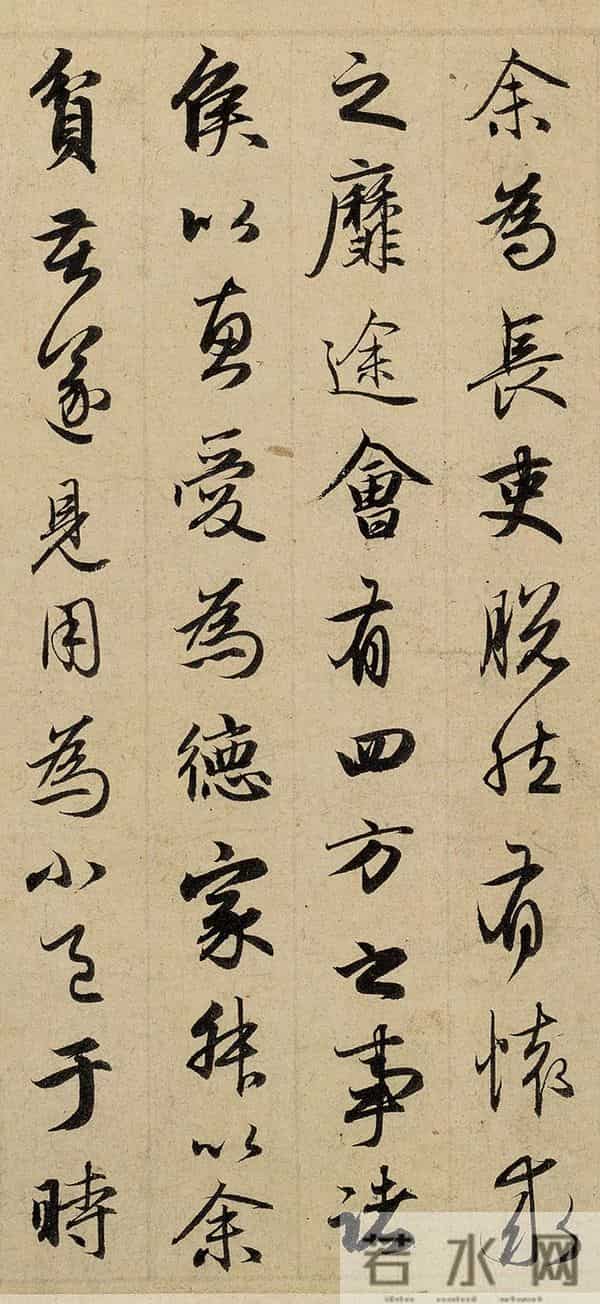 余為長吏脫然有懷求
之靡途會有四方之事諸
侯以惠愛為德家叔以余
貧苦遂見用為小邑于時
若水网